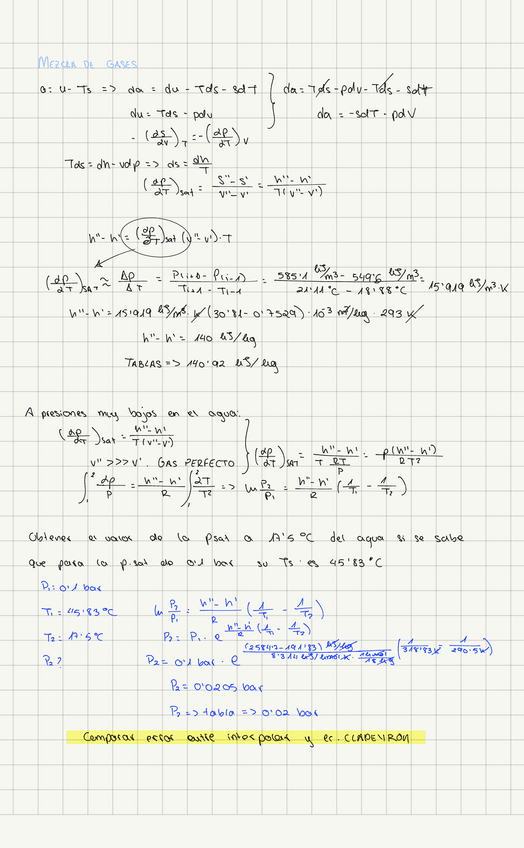 MEZCLA DE GASES
a: u - Ts => da = du - Tds - sdT } da = Tds - pdv - Tds - sdT
du = Tds - pdv } da = -sdT - pdV
- (∂s/∂v)_T = -(∂p/∂T)_V
Tds = dh - vdp => ds = dh/T
(∂p/∂T)_sat = (s'' - s')/(v'' - v') = (h'' - h')/(T(v'' - v'))
h'' - h' = (∂p/∂T)_sat (v'' - v') · T
(∂p/∂T)_SAT ≈ Δp/ΔT = (P(i+1) - P(i-1))/(Ti+1 - Ti-1) = (585'1 kJ/m³ - 549'6 kJ/m³)/(21'11°C - 18'88°C) = 15'919 kJ/m³·K
h'' - h' = 15'919 kJ/m³·K (30'81 - 0'7529) · 10⁻³ m³/kg · 293 K
h'' - h' = 140 kJ/kg
TABLAS => 140'92 kJ/kg
A presiones muy bajas en el agua:
(∂p/∂T)_sat = (h'' - h')/(T(v'' - v'))
v'' >>> v'. GAS PERFECTO } (∂p/∂T)_SAT = (h'' - h')/(T RT/P) = p(h'' - h')/(RT²)
∫₁² ∂p/p = (h'' - h')/R ∫₁² ∂T/T² => ln P₂/P₁ = (h'' - h')/R (1/T₁ - 1/T₂)
Obtener el valor de la psat a 17'5°C del agua si se sabe
que para la p.sat de 0'1 bar su Ts. es 45'83°C
P₁ = 0'1 bar
T₁ = 45'83°C ln P₂/P₁ = (h'' - h')/R (1/T₁ - 1/T₂)
T₂ = 17'5°C P₂ = P₁ · e^((h'' - h')/R (1/T₁ - 1/T₂))
P₂? P₂ = 0'1 bar · e^((2584'7 - 191'83) kJ/kg/(8'314 kJ/kmol·K · 1kmol/18kg) (1/318'83K - 1/290'5K))
P₂ = 0'0205 bar
P₂ => tabla => 0'02 bar
Comparar error entre interpolar y ec. CLAPEYRON